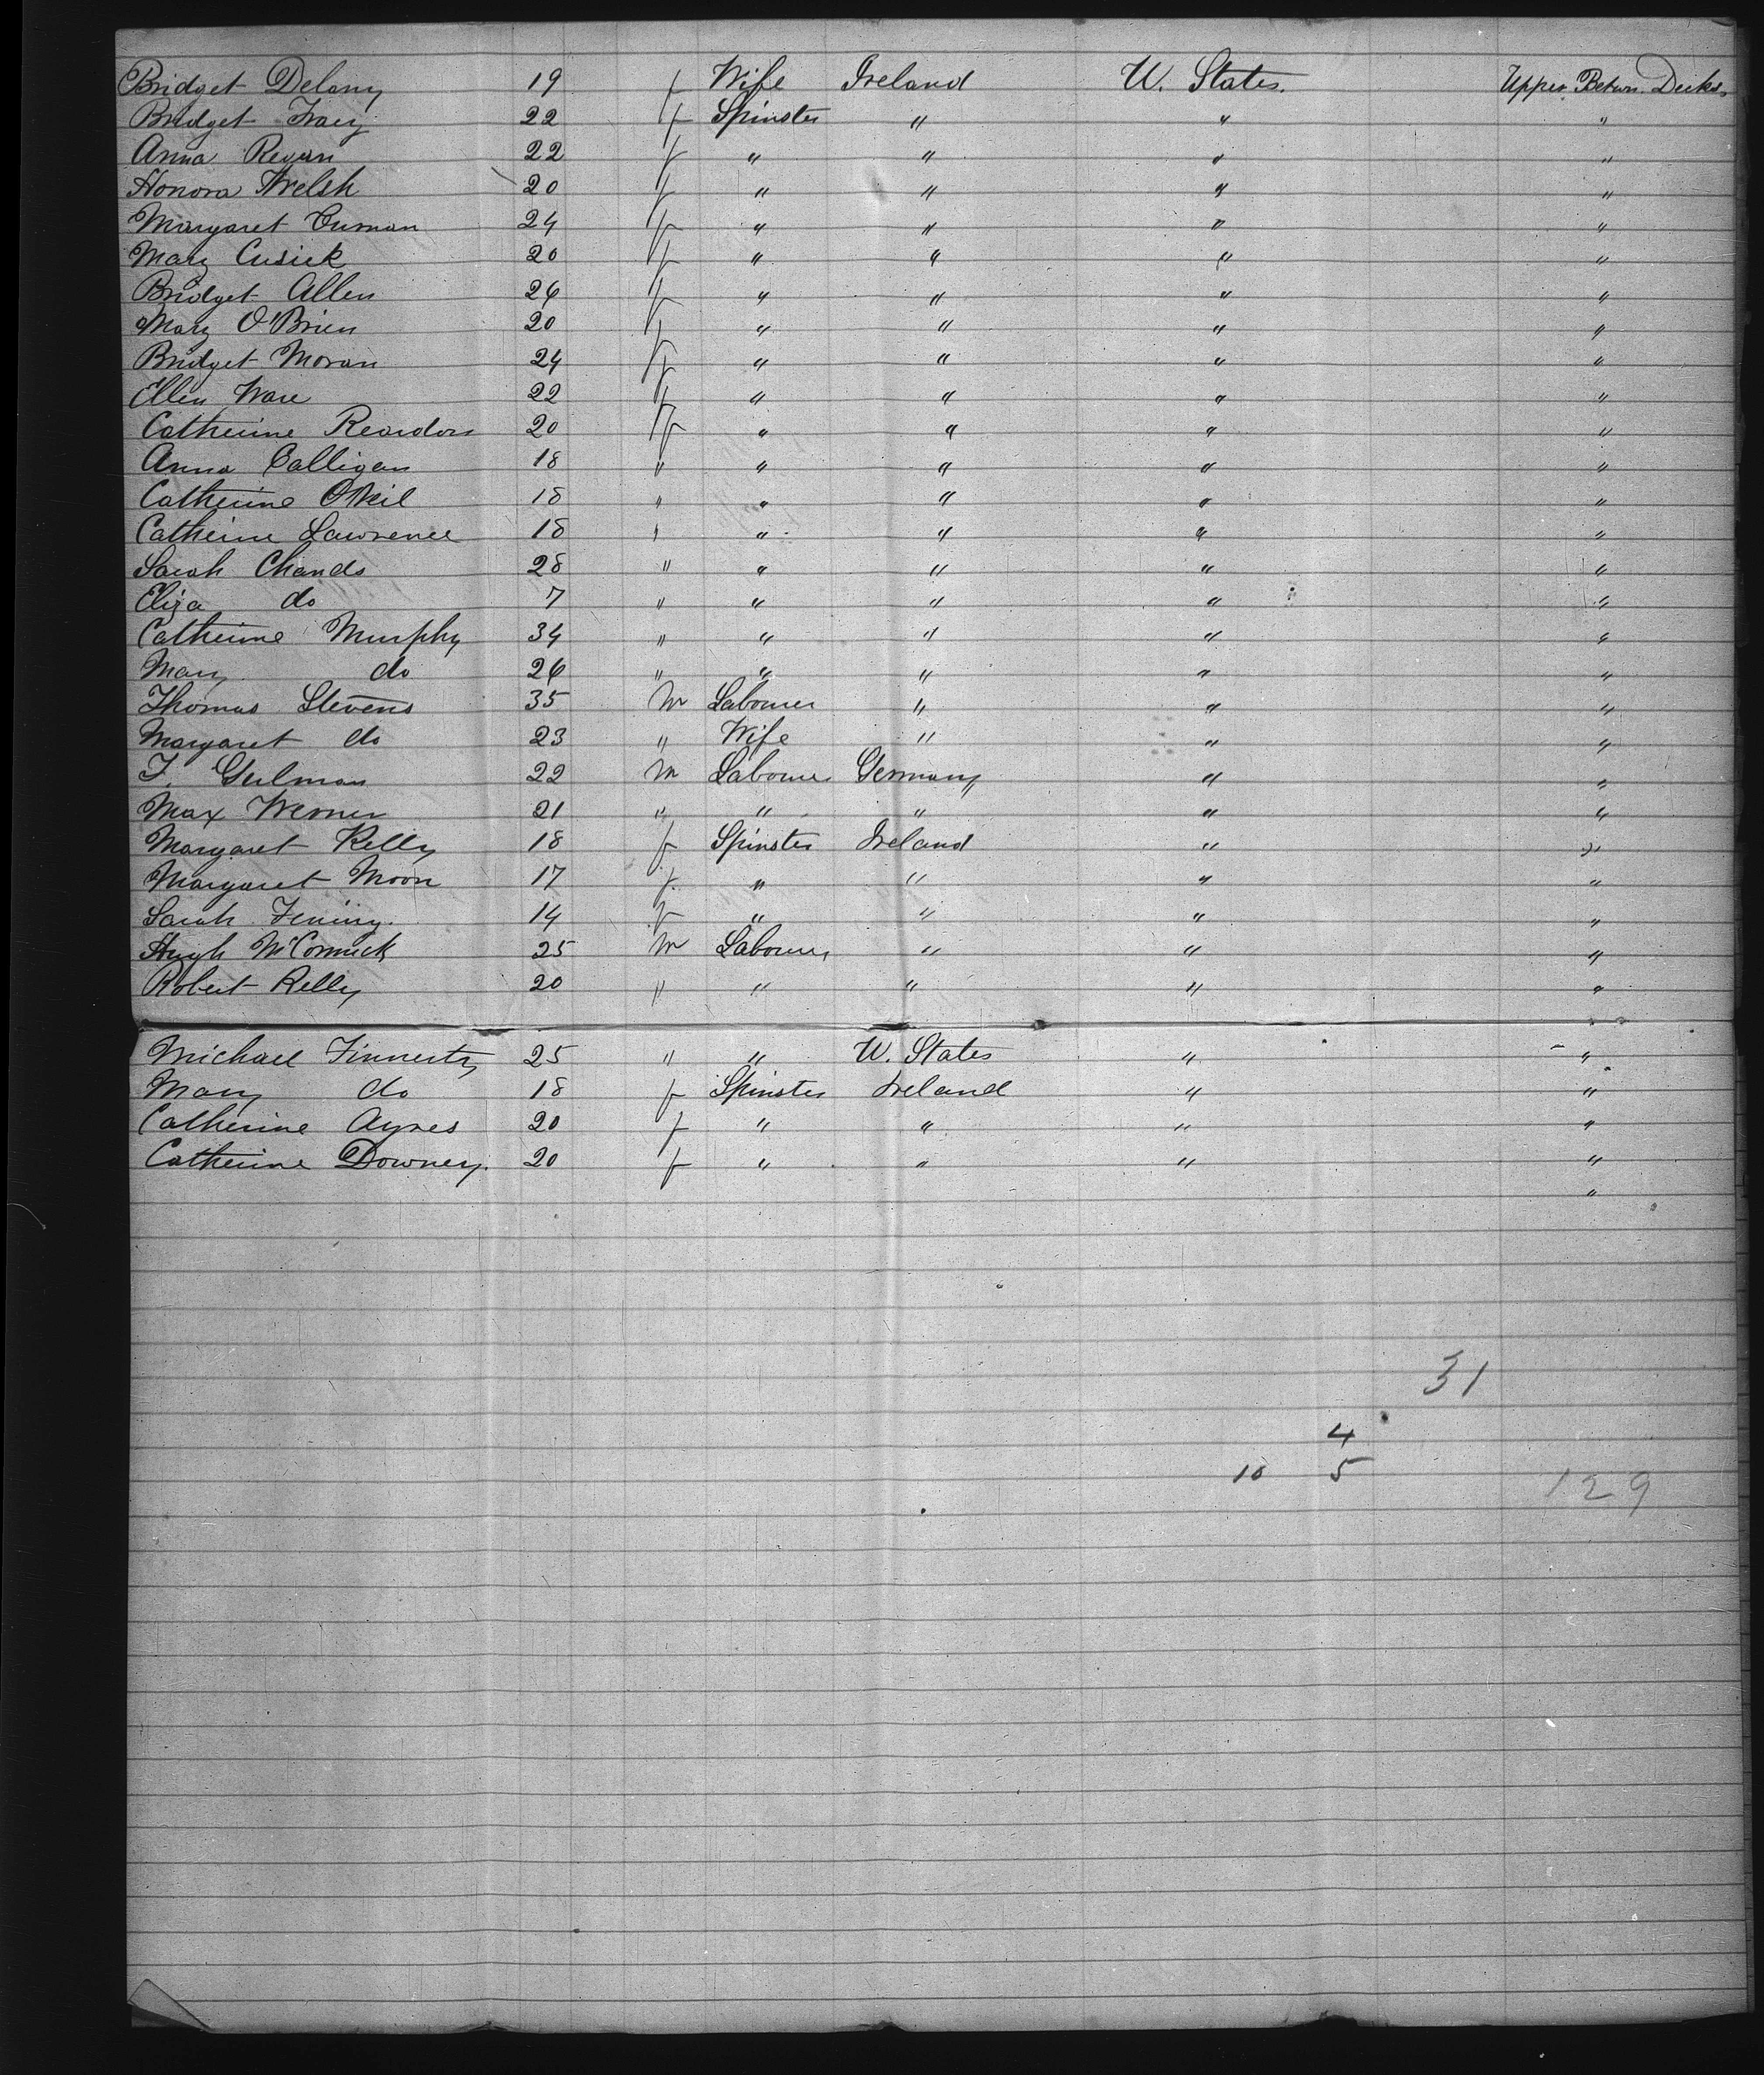 Bridget Delany 19 f Wife Ireland U. States. Upper Betwn. Decks
Bridget 22 f Spinster " " "
Anna Regan 22 f " " " "
Honora Welsh 20 f " " " "
Margaret 24 f " " " "
Mary Cusick 20 f " " " "
Bridget Allen 26 f " " " "
Mary O'Brien 20 f " " " "
Bridget Moran 24 f " " " "
Ellen Ware 22 f " " " "
Catherine Reardon 20 f " " " "
Anna Calligan 18 " " " " "
Catherine O'Neil 18 " " " " "
Catherine Lawrence 18 " " " " "
Sarah Chands 28 " " " " "
Eliza do 7 " " " " "
Catherine Murphy 34 " " " " "
Mary do 26 " " " " "
Thomas Stevens 35 M Labourer " " "
Margaret do 23 " Wife " " "
22 M Labourer Germany " "
Max Werner 21 " " " " "
Margaret Kelly 18 f Spinster Ireland " "
Margaret Moon 17 f " " " "
Sarah 14 f " " " "
Hugh McCormick 25 M Labourer " " "
Robert Kelly 20 " " " " "
Michael Finnerty 25 " " U. States " "
Mary do 18 f Spinster Ireland " "
Catherine Ayres 20 f " " " "
Catherine Downey. 20 f " " " "
"
31
4
10 5
129